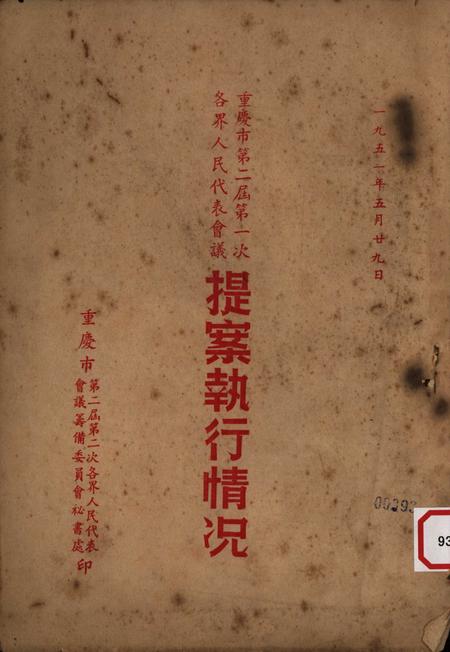 一九五一年五月廿九日
重慶市第二屆第一次
各界人民代表會議
提案執行情況
重慶市
第二屆第二次各界人民代表
會議籌備委員會祕書處
印
00293
93